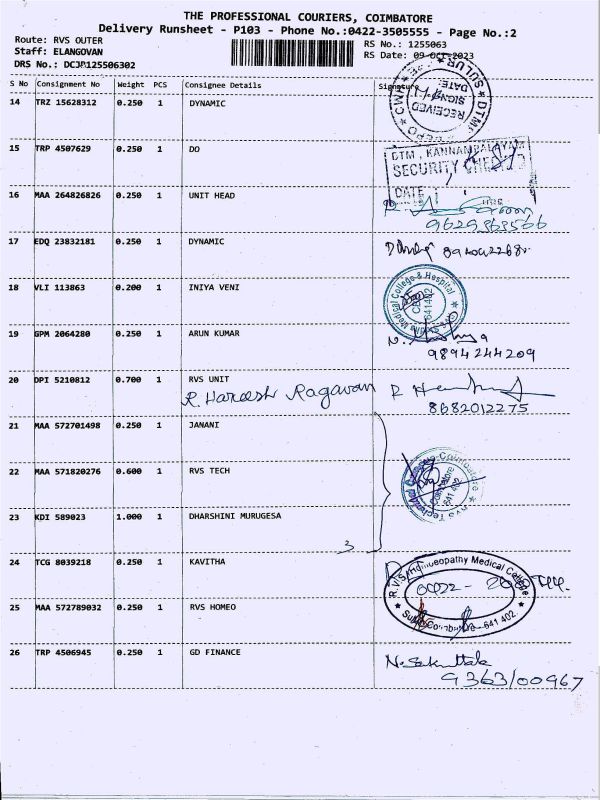 THE PROFESSIONAL COURIERS, COIMBATORE
Delivery Runsheet - P103 - Phone No.:0422-3505555 - Page No.:2
Route: RVS OUTER
RS No.: 1255063
Staff: ELANGOVAN
RS Date: 09-OCT-2023
DRS No.: DCJP125506302
S No Consignment No Weight PCS Consignee Details Signature
14 TRZ 15628312 0.250 1 DYNAMIC
RECEIVED
SULUR
15 TRP 4507629 0.250 1 DO
DTM, KANNAMPALAYAM
SECURITY CHECKED
DATE
16 MAA 264826826 0.250 1 UNIT HEAD
9629363566
17 EDQ 23832181 0.250 1 DYNAMIC
18 VLI 113863 0.200 1 INIYA VENI
Medical College & Hospital
641402
19 GPM 2064280 0.250 1 ARUN KUMAR
9894244209
20 DPI 5210812 0.700 1 RVS UNIT
R. Hareesh Ragavan
8682012275
21 MAA 572701498 0.250 1 JANANI
22 MAA 571820276 0.600 1 RVS TECH
Coimbatore
641 402
23 KDI 589023 1.000 1 DHARSHINI MURUGESA
3
24 TCG 8039218 0.250 1 KAVITHA
R.V.S. Homoeopathy Medical College
25 MAA 572789032 0.250 1 RVS HOMEO
Sulur Coimbatore-641 402.
26 TRP 4506945 0.250 1 GD FINANCE
N. Sakuntala
9363100967